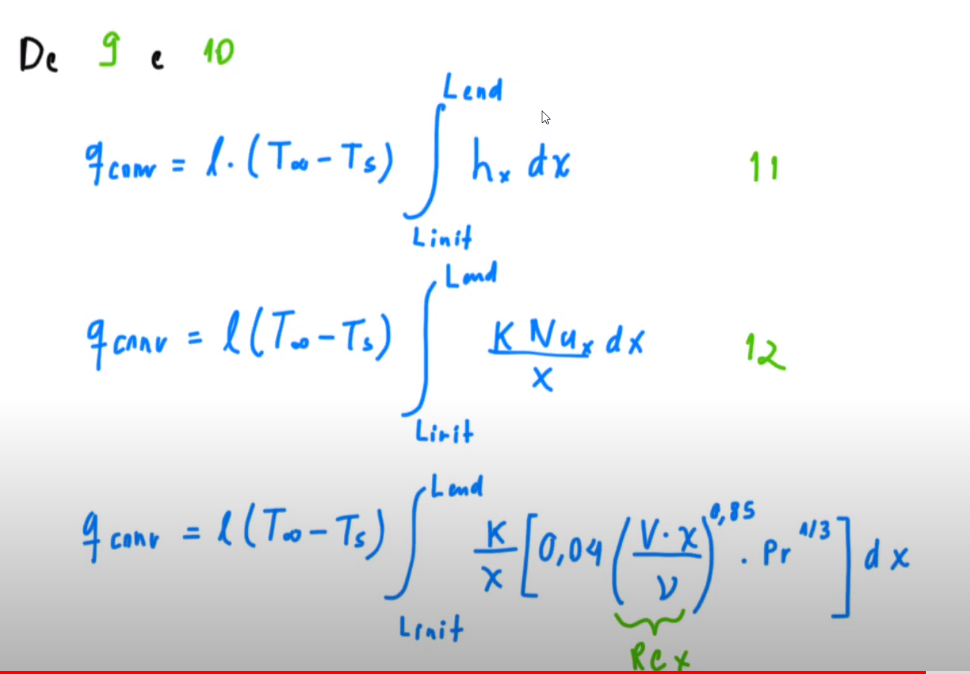 De 9 e 10
q_conv = l·(T∞ - Ts) ∫_{Linit}^{Lend} h_x dx 11
q_conv = l(T∞ - Ts) ∫_{Linit}^{Lend} \frac{K Nu_x}{x} dx 12
q_conv = l(T∞ - Ts) ∫_{Linit}^{Lend} \frac{K}{x} [0,04 (\frac{V·x}{ν})^{0,85} · Pr^{1/3}] dx
Rex